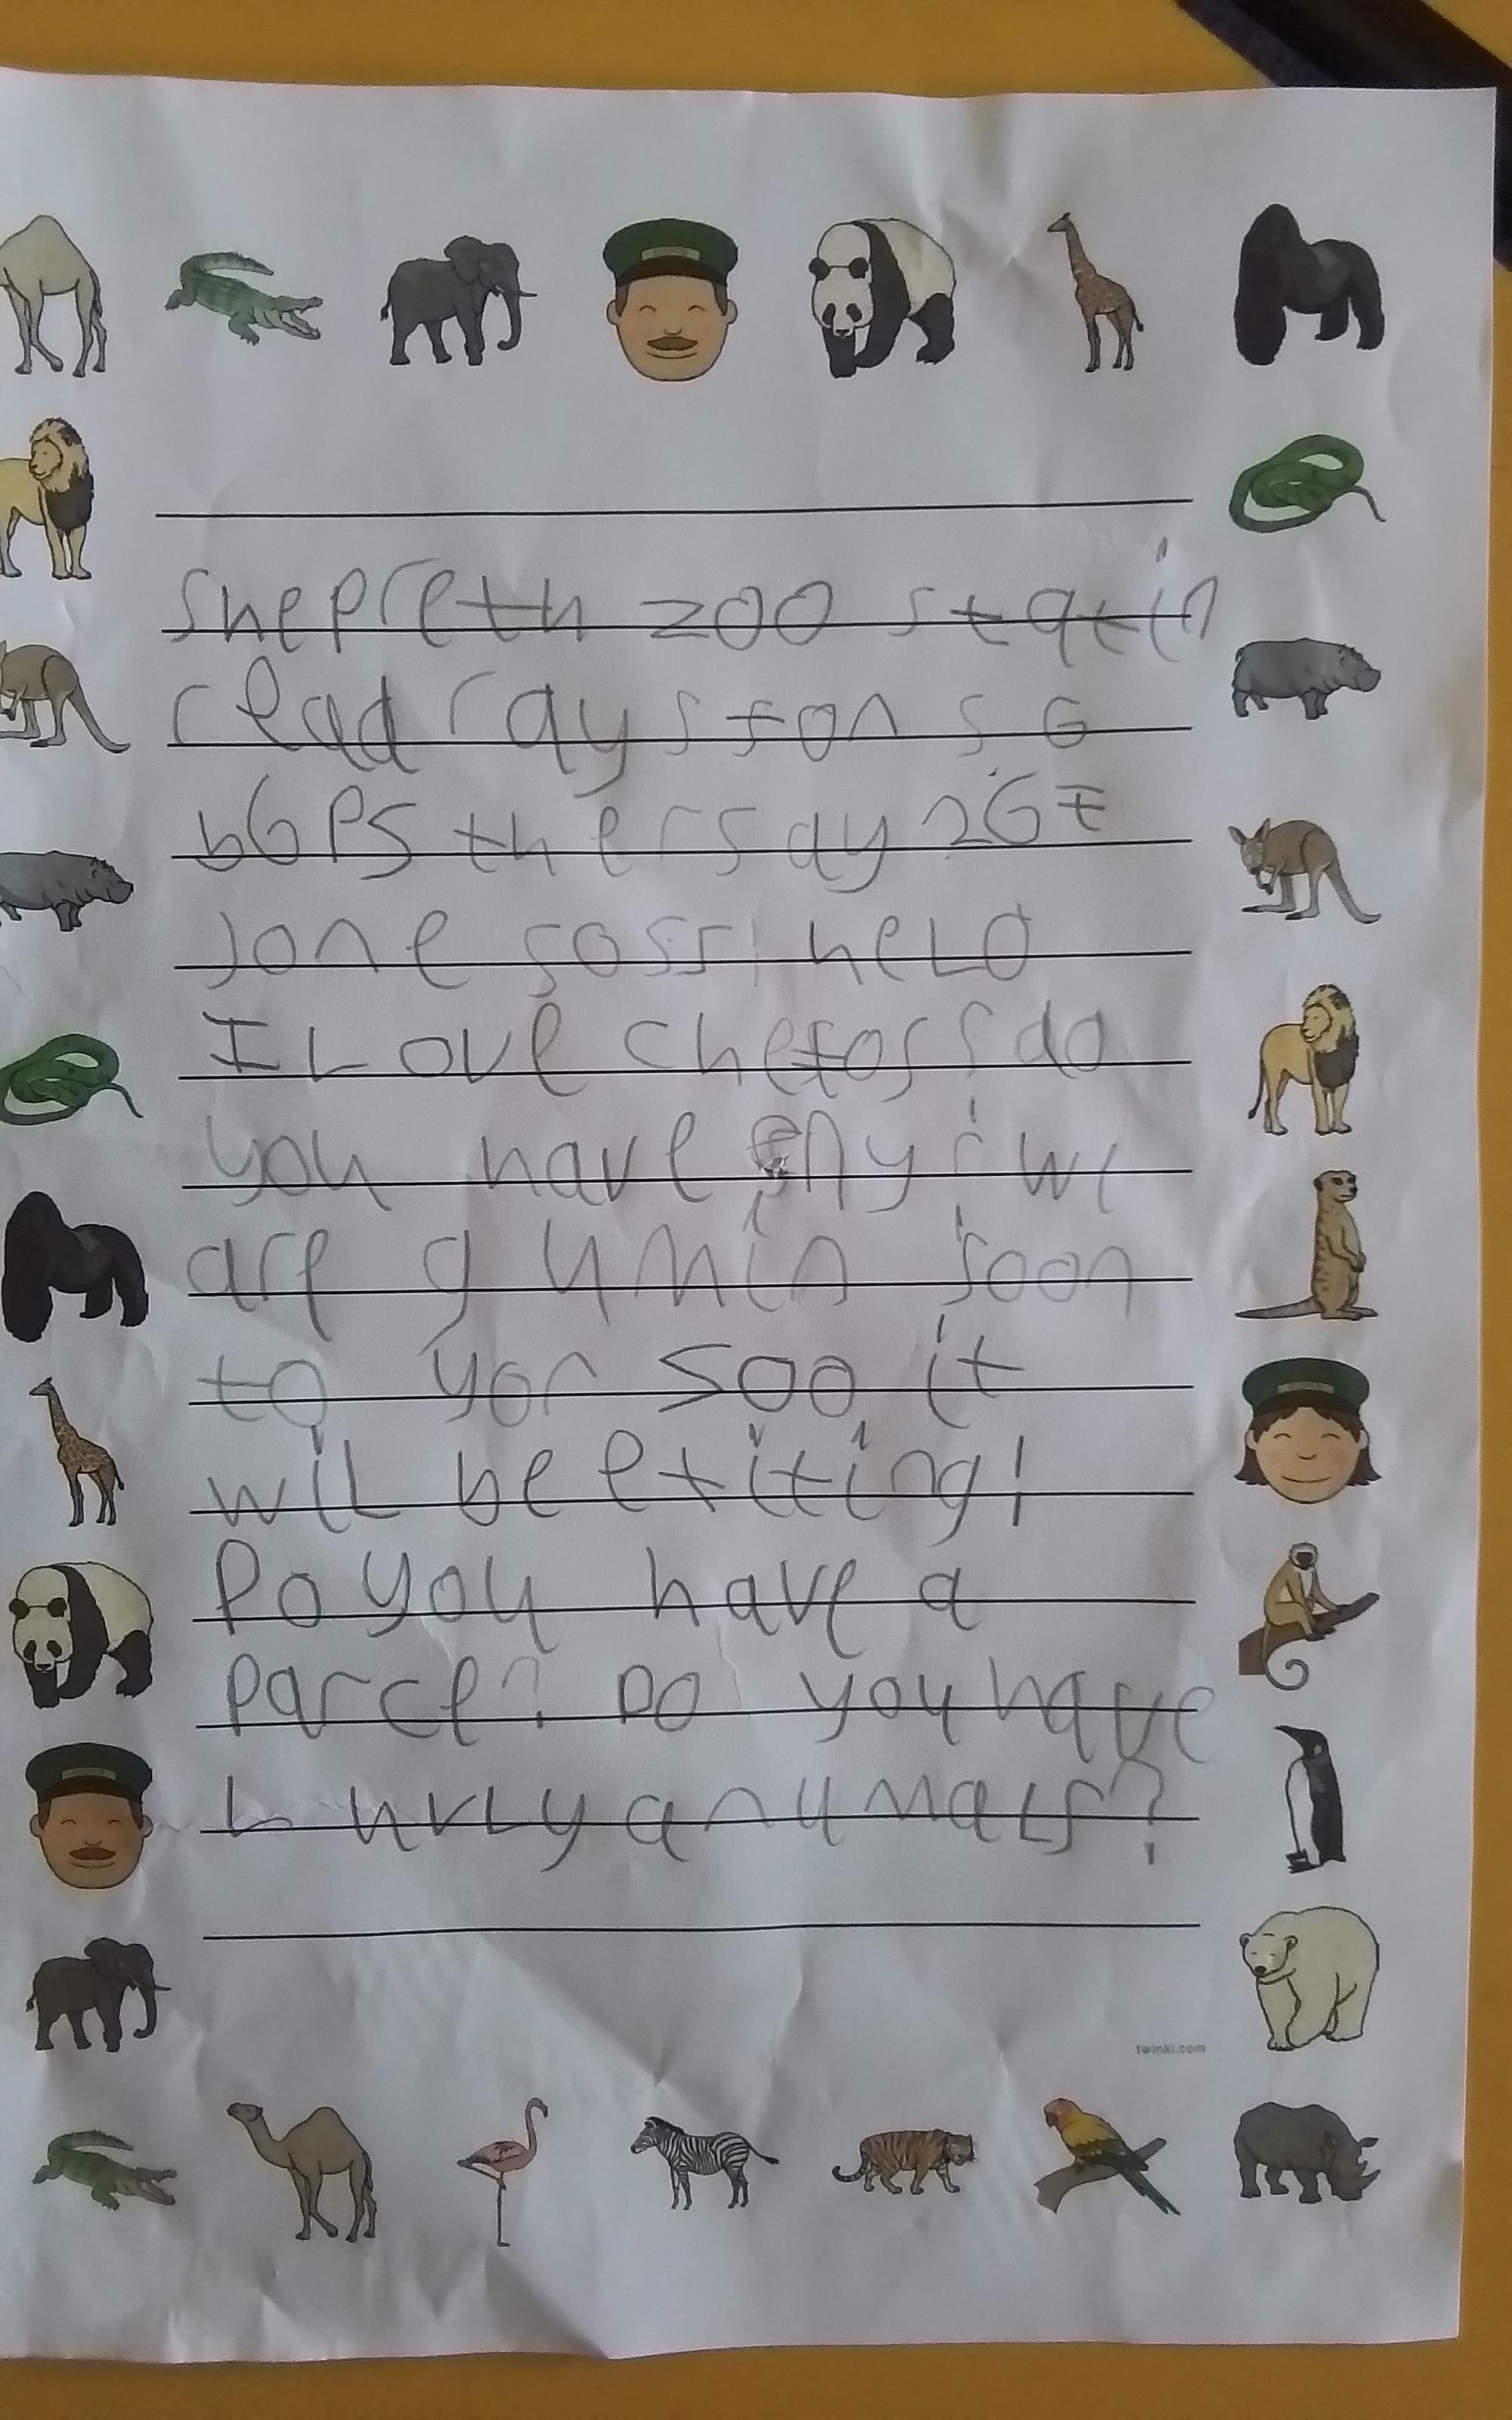 shepreth zoo statin
read raystons G
b6PS thersday 26t
Jone sossi heLo
I Love chetos do
you have eny we
are gumin soon
to yor soo it
wiL be exiting!
Do you have a
parce? Do you have
hurLy anumaLs?
twinkl.com